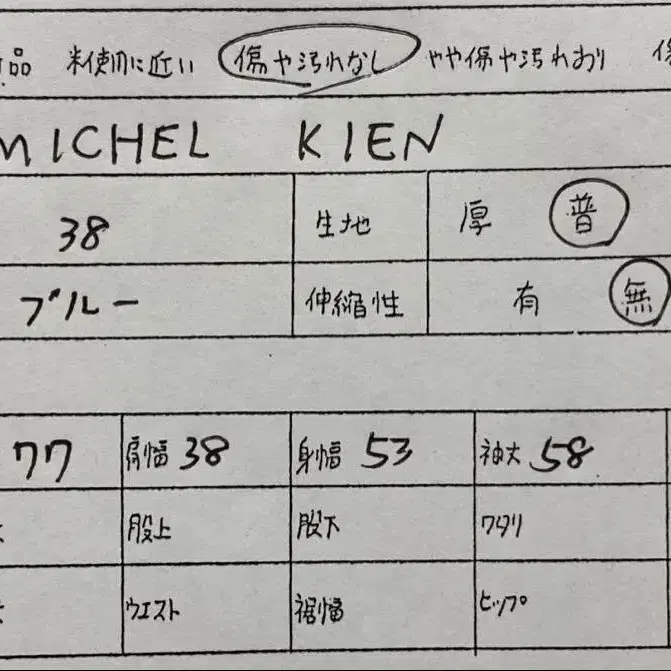 品 未使用に近い 傷や汚れなし やや傷や汚れあり
MICHEL KIEN
38 生地 厚 普
ブルー 伸縮性 有 無
77 肩幅 38 身幅 53 袖丈 58
股上 股下 ワタリ
ウエスト 裾幅 ヒップ